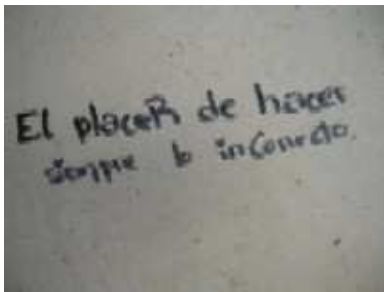 El placeR de hacer
siempre lo incorrecto.